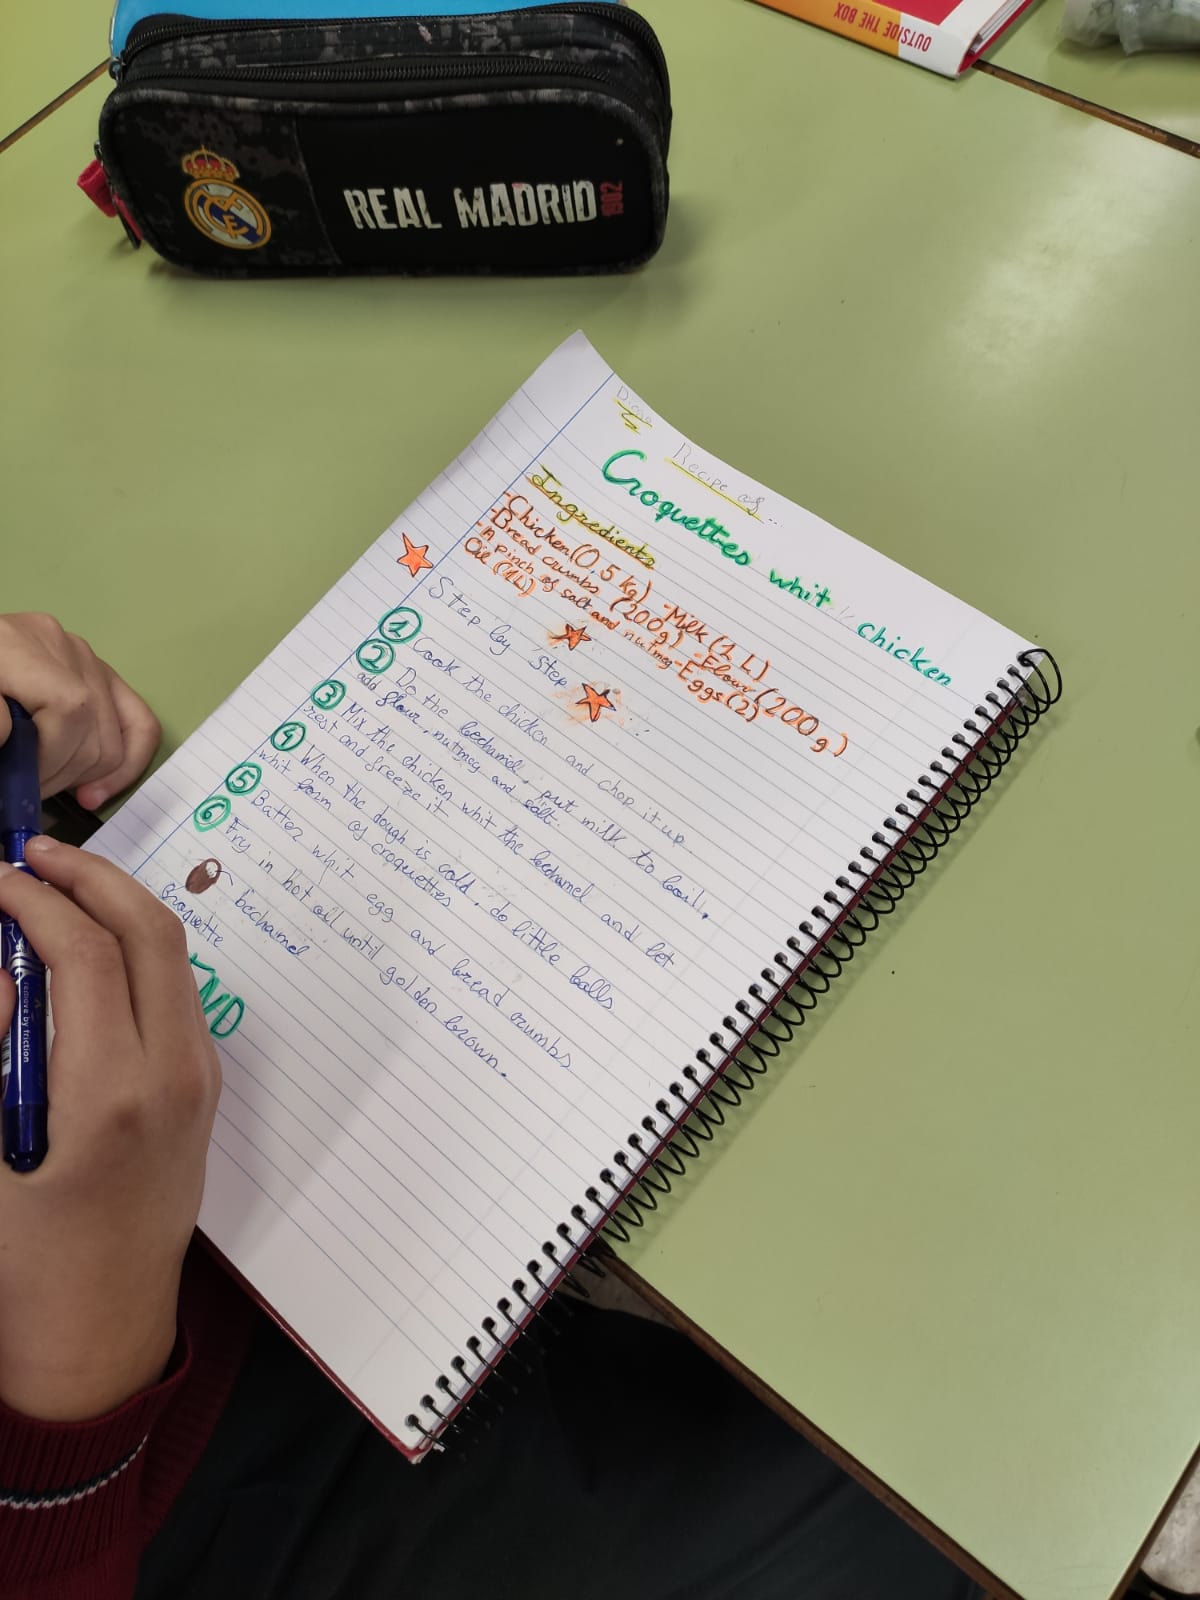 OUTSIDE THE BOX
REAL MADRID 1902
Recipe of...
Croquettes whit chicken
Ingredients
-Chicken (0,5 kg) -Milk (1 L)
-Bread crumbs (200 g) -Flour (200 g)
-A pinch of salt and nutmeg -Eggs (2)
Oil (1L)
Step by step
1 Cook the chicken and chop it up
2 Do the bechamel, put milk to boil,
add flour, nutmeg and salt.
3 Mix the chicken whit the bechamel and let
rest and freeze it
4 When the dough is cold, do little balls
whit form of croquettes
5 Batter whit egg and bread crumbs
6 Fry in hot oil until golden brown.
bechamel
Croquette
END
remove by friction